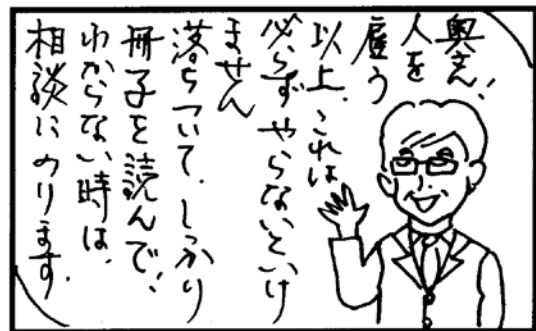 奥さん、
人を
雇う
以上、これは
必らずやらないといけ
ません
落ちついて、しっかり
冊子を読んで、
わからない時は、
相談にのります。